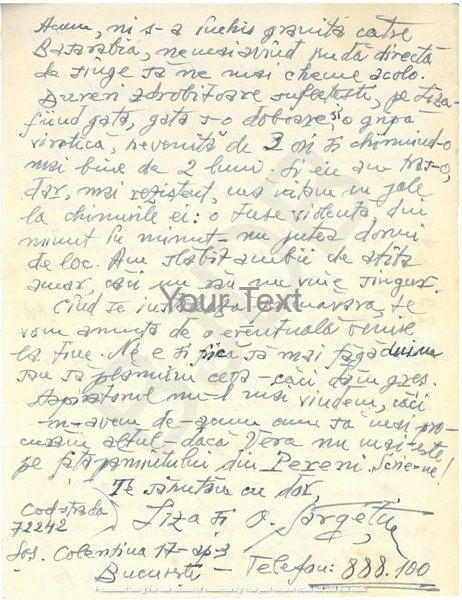 Acum, ni s-a închis granița către
Basarabia, nemaiavînd rudă directă
de sînge să ne mai cheme acolo.
Dureri zdrobitoare sufletești, pe Liza
fiind gata, gata s-o doboare, și o gripă
virotică, revenită de 3 ori și chinuind-o
mai bine de 2 luni. Și eu am tras-o,
dar, mai rezistent,
la chinurile ei: o tuse violentă, din
minut în minut - nu putea dormi
de loc. Am slăbit amîndoi de atîta
amar, căci un rău nu vine singur.
Cînd se primăvara, te
vom anunța de o eventuală venire
la tine. Ne e și frică să mai făgăduim
sau să plănuim ceva - căci dăm greș.
Aparatorul nu-l mai vindem, căci
n-avem de-acum cum să mai pro-
curăm altul - dacă Vera nu mai este
pe fața pămîntului din Pereni. Scrie-ne!
Te sărutăm cu dor,
Liza și O. Sargețiu
Cod-strada
72242
Șos. Colentina 17- ap-3
București - Telefon: 888.100
Your Text